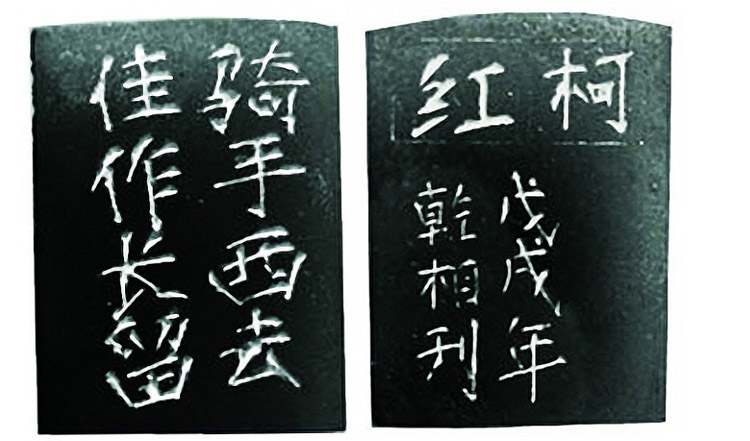 骑手西去
佳作长留
柯红
戊戌年
乾相刊